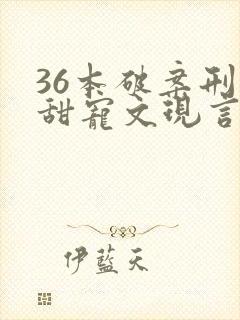 36本破案刑
甜寵文現言
伊藍天